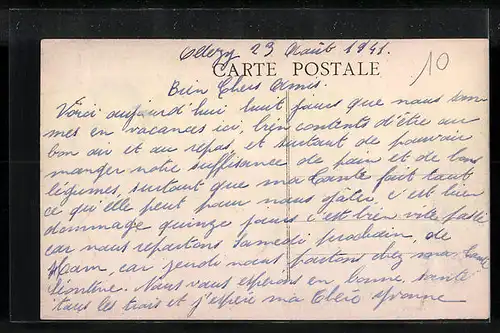 Ollezy 23 Août 1941.
CARTE POSTALE
10
Bien Chers Amis.
Voici aujourd'hui huit jours que nous som
mes en vacances ici, bien contents d'être au
bon air et au repos, et surtout de pouvoir
manger notre suffisance de pain et de bons
légumes, surtout que ma tante fait tout
ce qu'elle peut pour nous gâter, c'est bien
dommage quinze jours c'est bien vite passé
car nous repartons samedi prochain, de
Ham, car jeudi nous partons chez ma tante
Léontine. Nous vous espérons en bonne santé
tous les trois et j'espère ma Chère Yvonne